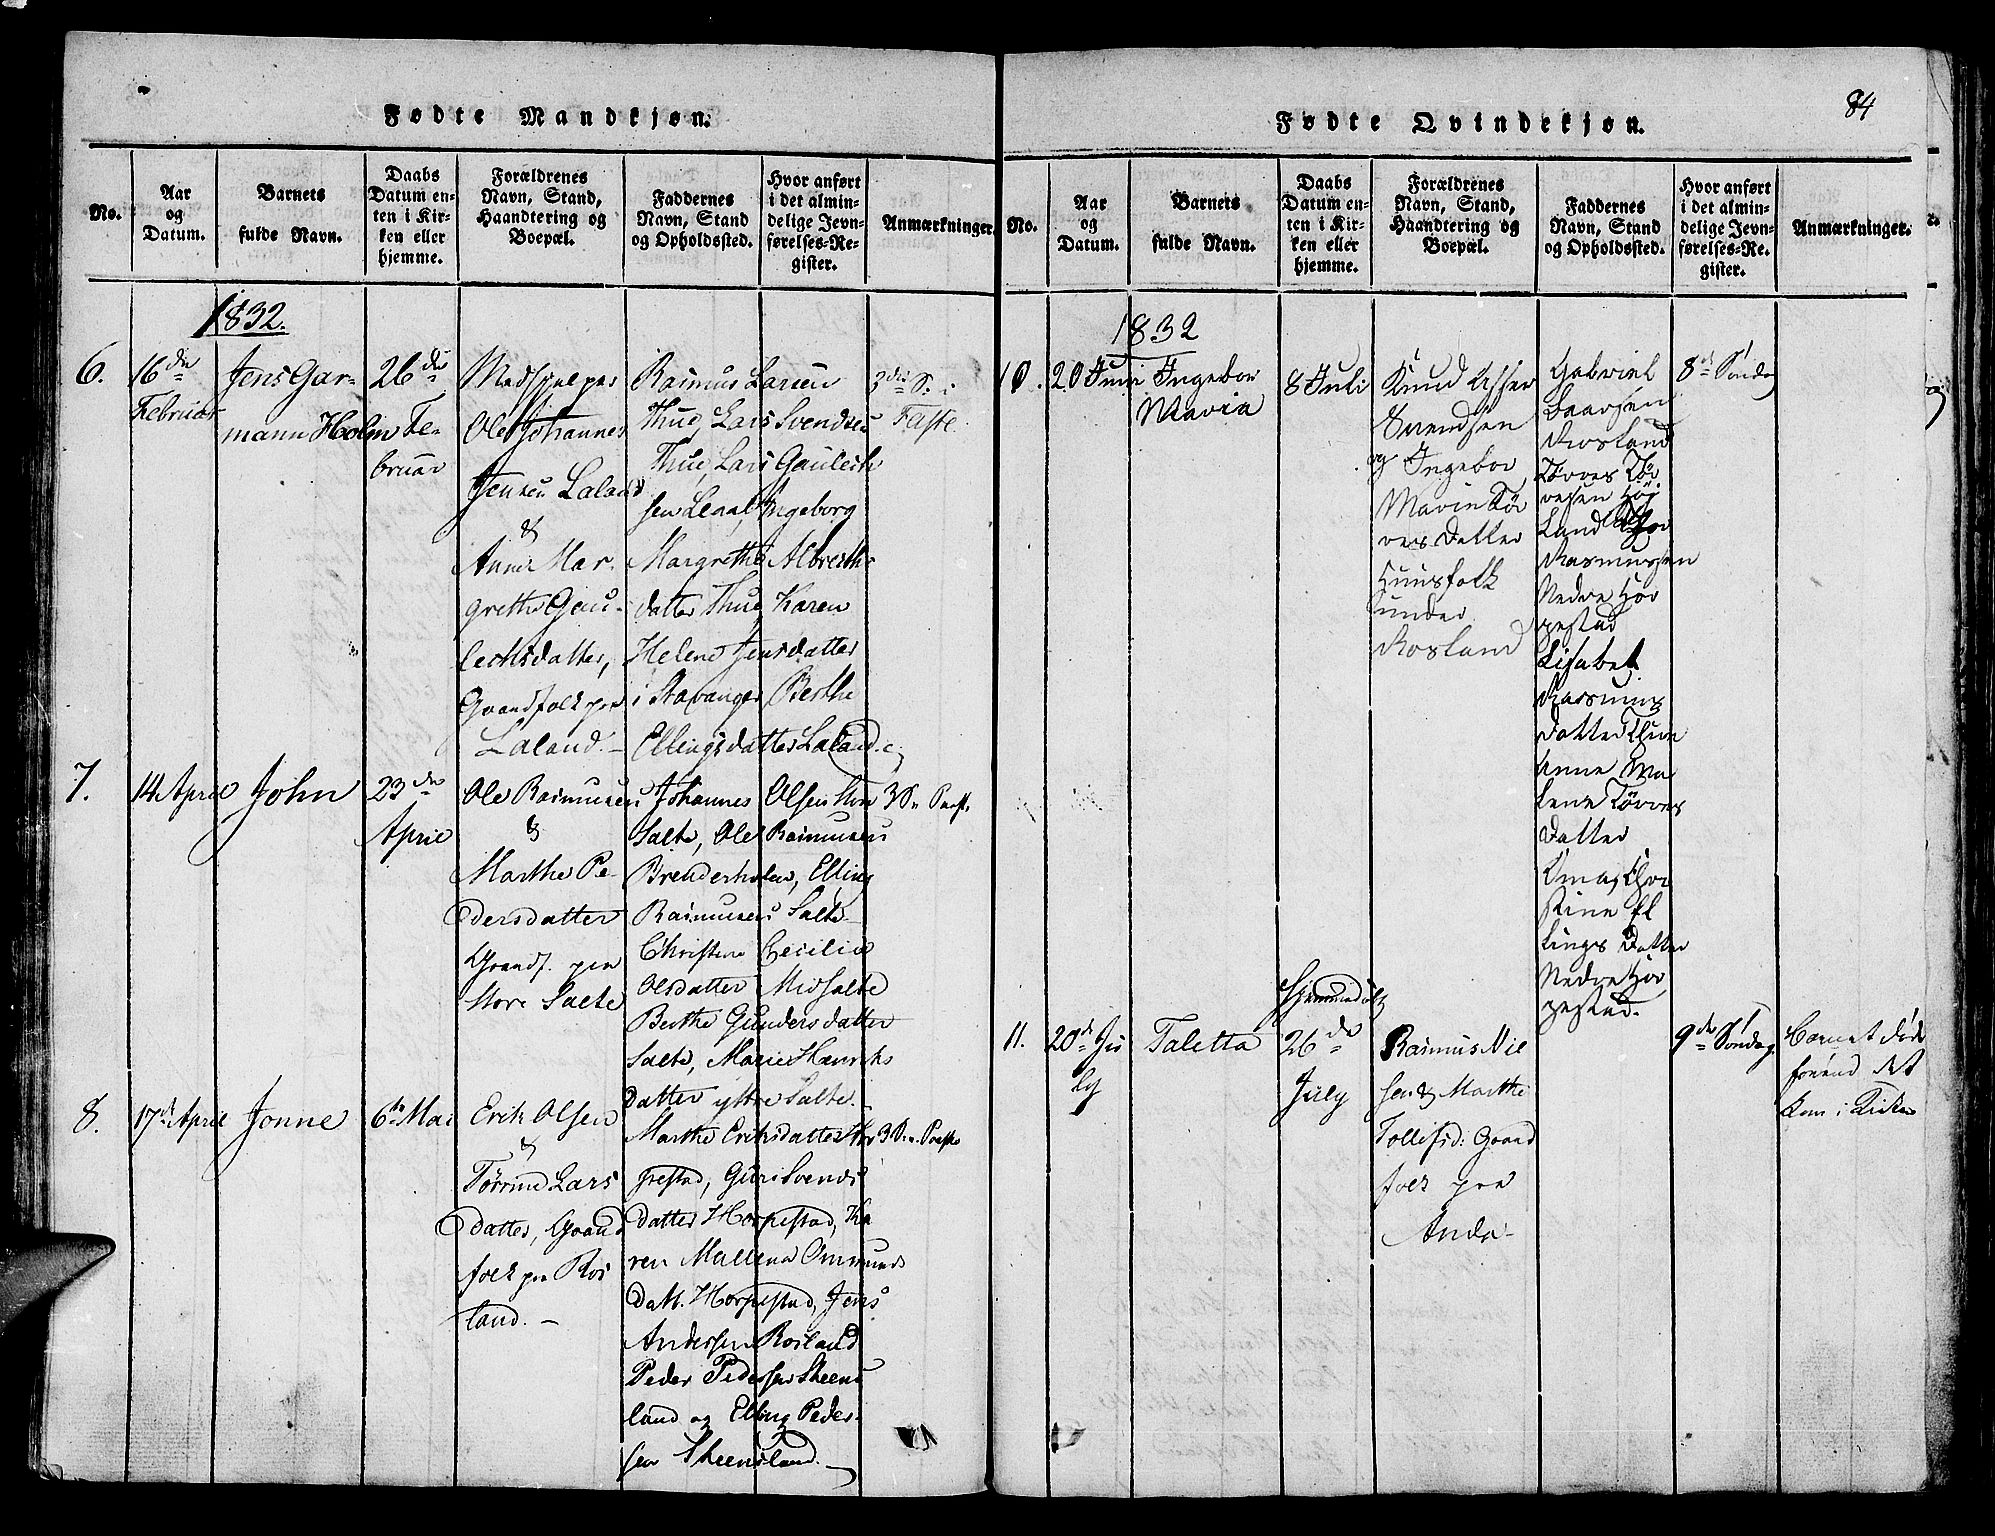 84
Fødte Mandkjøn.
No.
Aar og Datum.
Barnets fulde Navn.
Daabs Datum enten i Kirken eller hjemme.
Forældrenes Navn, Stand, Haandtering og Boepæl.
Faddernes Navn, Stand og Opholdssted.
Hvor anført i det almindelige Jevnførelses-Register.
Anmærkninger.
1832.
6.
16de
Februar
Jens Gar-
mann Holm
26de
Fe-
bruar
Medhjelper
Ole Johannes
Jensen Laland
&
Anne Mar-
grethe Gau-
lechsdatter,
Gaardfolk paa
Laland. –
Rasmus Larsen
Thue, Lars Svendsen
Thue, Lars Gaulech
sen Ingeborg
Margrethe Albrechts
datter Thue, Karen
Helene Jensdatter
i Stavanger Berthe
Ellingsdatter Laland.
3die S. i
Faste.
7.
14 April
John
23de
April
Ole Rasmusen
&
Marthe Pe-
dersdatter
Gaardf. paa
Store Salte
Johannes Olsen Store
Salte, Ole Rasmusen
Elling
Rasmusen Salte
Christene Cecilie
Olsdatter Midsalte
Berthe Gundersdatter
Salte, Marie Henriks
datter yttre Salte.
3 S. Paaske
8.
17de April
Jonne
6te Mai
Erik Olsen
&
Tørrine Lars
datter, Gaard
folk paa Ros
land. –
Marthe Eriksdatter Hor
pestad, Guri Svends
datter Horpestad, Ka
ren Mallena Ommunds
datt. Horpestad, Jens
Andersen Rosland
Peder Pedersen Skeens
land og Elling Peder-
sen Skeensland.
3 S. Paaske
Fødte Qvindekjøn.
No.
Aar og Datum.
Barnets fulde Navn.
Daabs Datum enten i Kirken eller hjemme.
Forældrenes Navn, Stand, Haandtering og Boepæl.
Faddernes Navn, Stand og Opholdssted.
Hvor anført i det almindelige Jevnførelses-Register.
Anmærkninger.
1832
10.
20 Juni
Ingebor
Maria
8 Juli
Knud
Svendsen
og Ingebor
Marie Tør
vers Datter
Huusfolk
under
Rosland
Gabriel
Laarsen
Rosland
Tørres Tør
resen Høj
Land
Rasmussen
Nedre Hor
pestad
Lisabet
Rasmus
datter Thue
Anne Ma
lene Tørres
Datter
stine El
lings Datter
Nedre Hor
pestad.
8de Søndag
11.
20de Ju
ly
Taletta
Hjemmedøbt
26de
July
Rasmus Niel
sen & Marthe
Tollefsd: Gaard
folk paa
Anda –
9de Søndag
Barnet døde
førend det
kom i Kirken